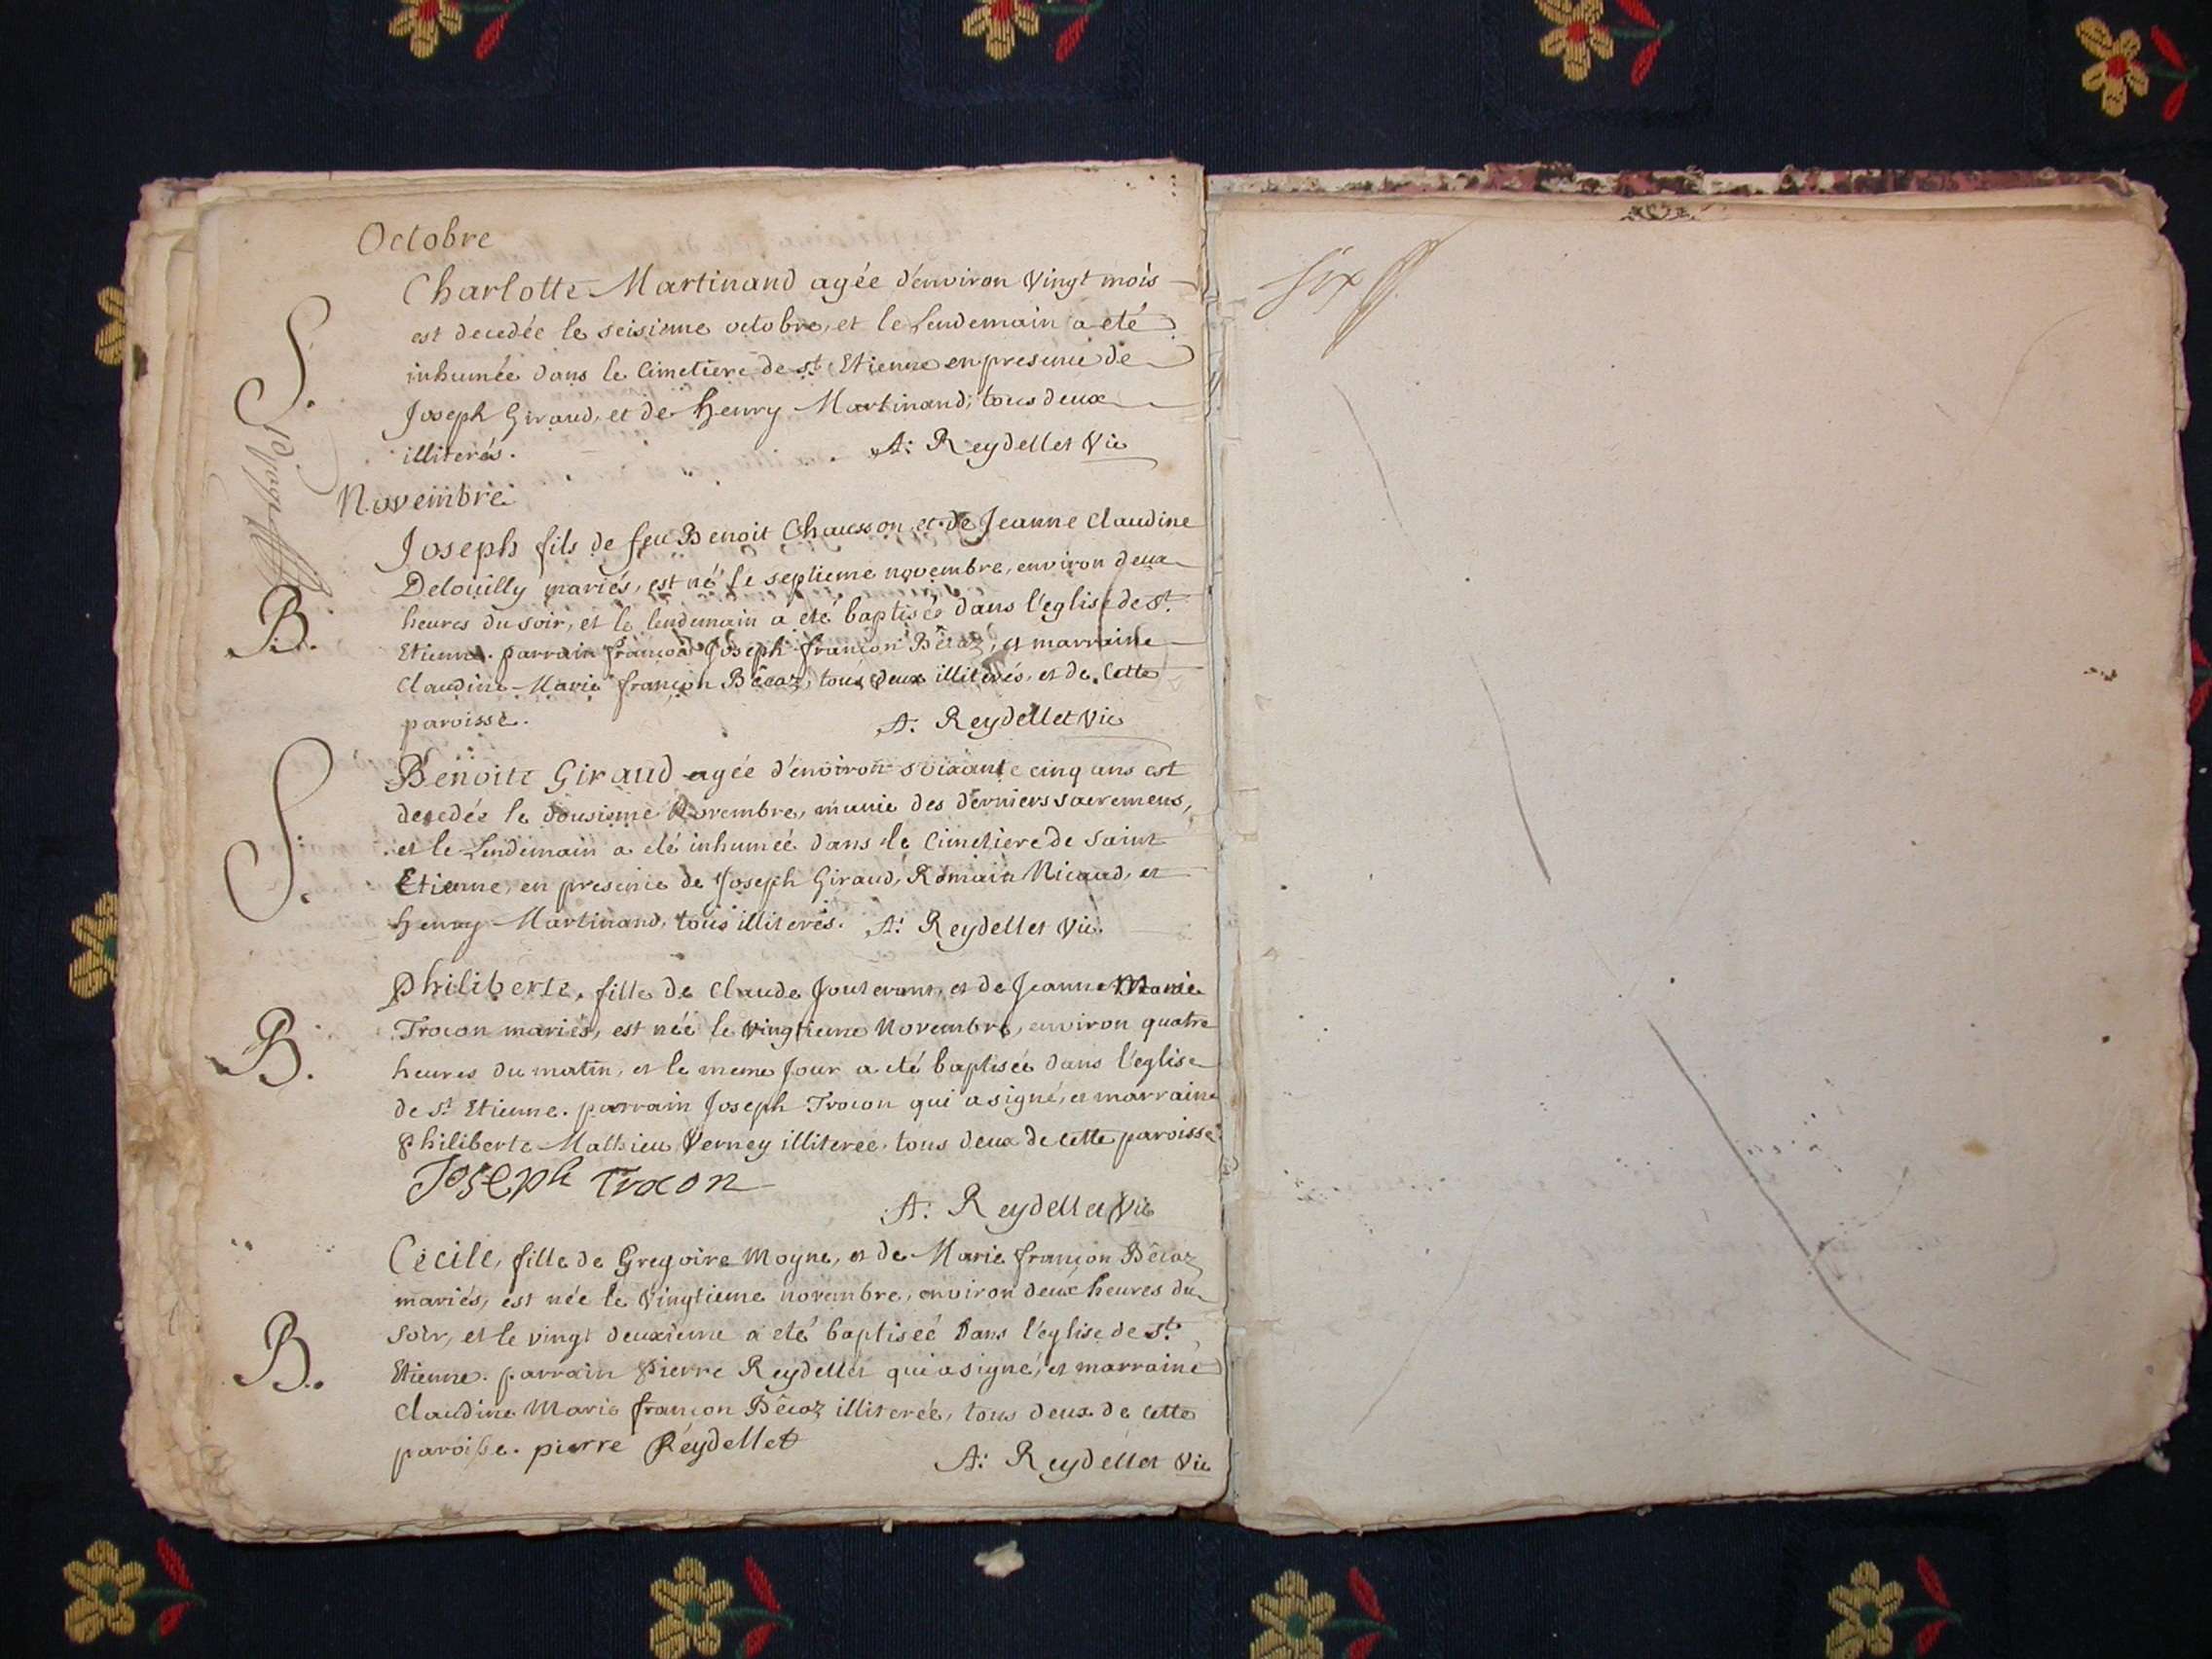 Octobre
S.
Charlotte Martinand agée d'environ vingt mois
est decedée le seisieme octobre, et le Lendemain a eté
inhumée dans le Cimetiere de st. Etienne en presence de
Joseph Giraud, et de henry Martinand, tous deux
illiterés.
A: Reydellet Vic
Novembre
B.
Joseph fils de feu Benoit Chausson et de Jeanne Claudine
Delouilly mariés, est né le septieme novembre, environ deux
heures du soir, et le lendemain a eté baptisée dans l'eglise de st.
Etienne. parrain françois Joseph françon Bêcaz, et marraine
Claudine Marie françon Bêcaz, tous deux illiterés, et de cette
paroisse.
A. Reydellet Vic
S.
Benoite Giraud agée d'environ soixante cinq ans est
decedée le dousieme Novembre, munie des derniers sacremens,
et le Lendemain a eté inhumée dans le Cimetiere de saint
Etienne, en presence de Joseph Giraud, Romain Nicaud, et
henry Martinand, tous illiterés. A: Reydellet Vic.
B.
Philiberte, fille de Claude et de Jeanne Marie
Trocon mariés, est née le vingtieme Novembre, environ quatre
heures du matin, et le meme Jour a eté baptisée dans l'eglise
de st Etienne. parrain Joseph Trocon qui a signé, et marraine
Philiberte Mathieu Verney illiterée, tous deux de cette paroisse.
Joseph Trocon
A: Reydellet Vic
B.
Cécile, fille de Gregoire Moyne, et de Marie françon Bêcaz
mariés, est née le vingtieme novembre, environ deux heures du
soir, et le vingt deuxieme a eté baptiseé dans l'eglise de st.
Etienne. parrain Pierre Reydellet qui a signé, et marraine
Claudine Marie françon Bêcaz illiterée, tous deux de cette
paroisse. pierre Reydellet
A: Reydellet Vic
six